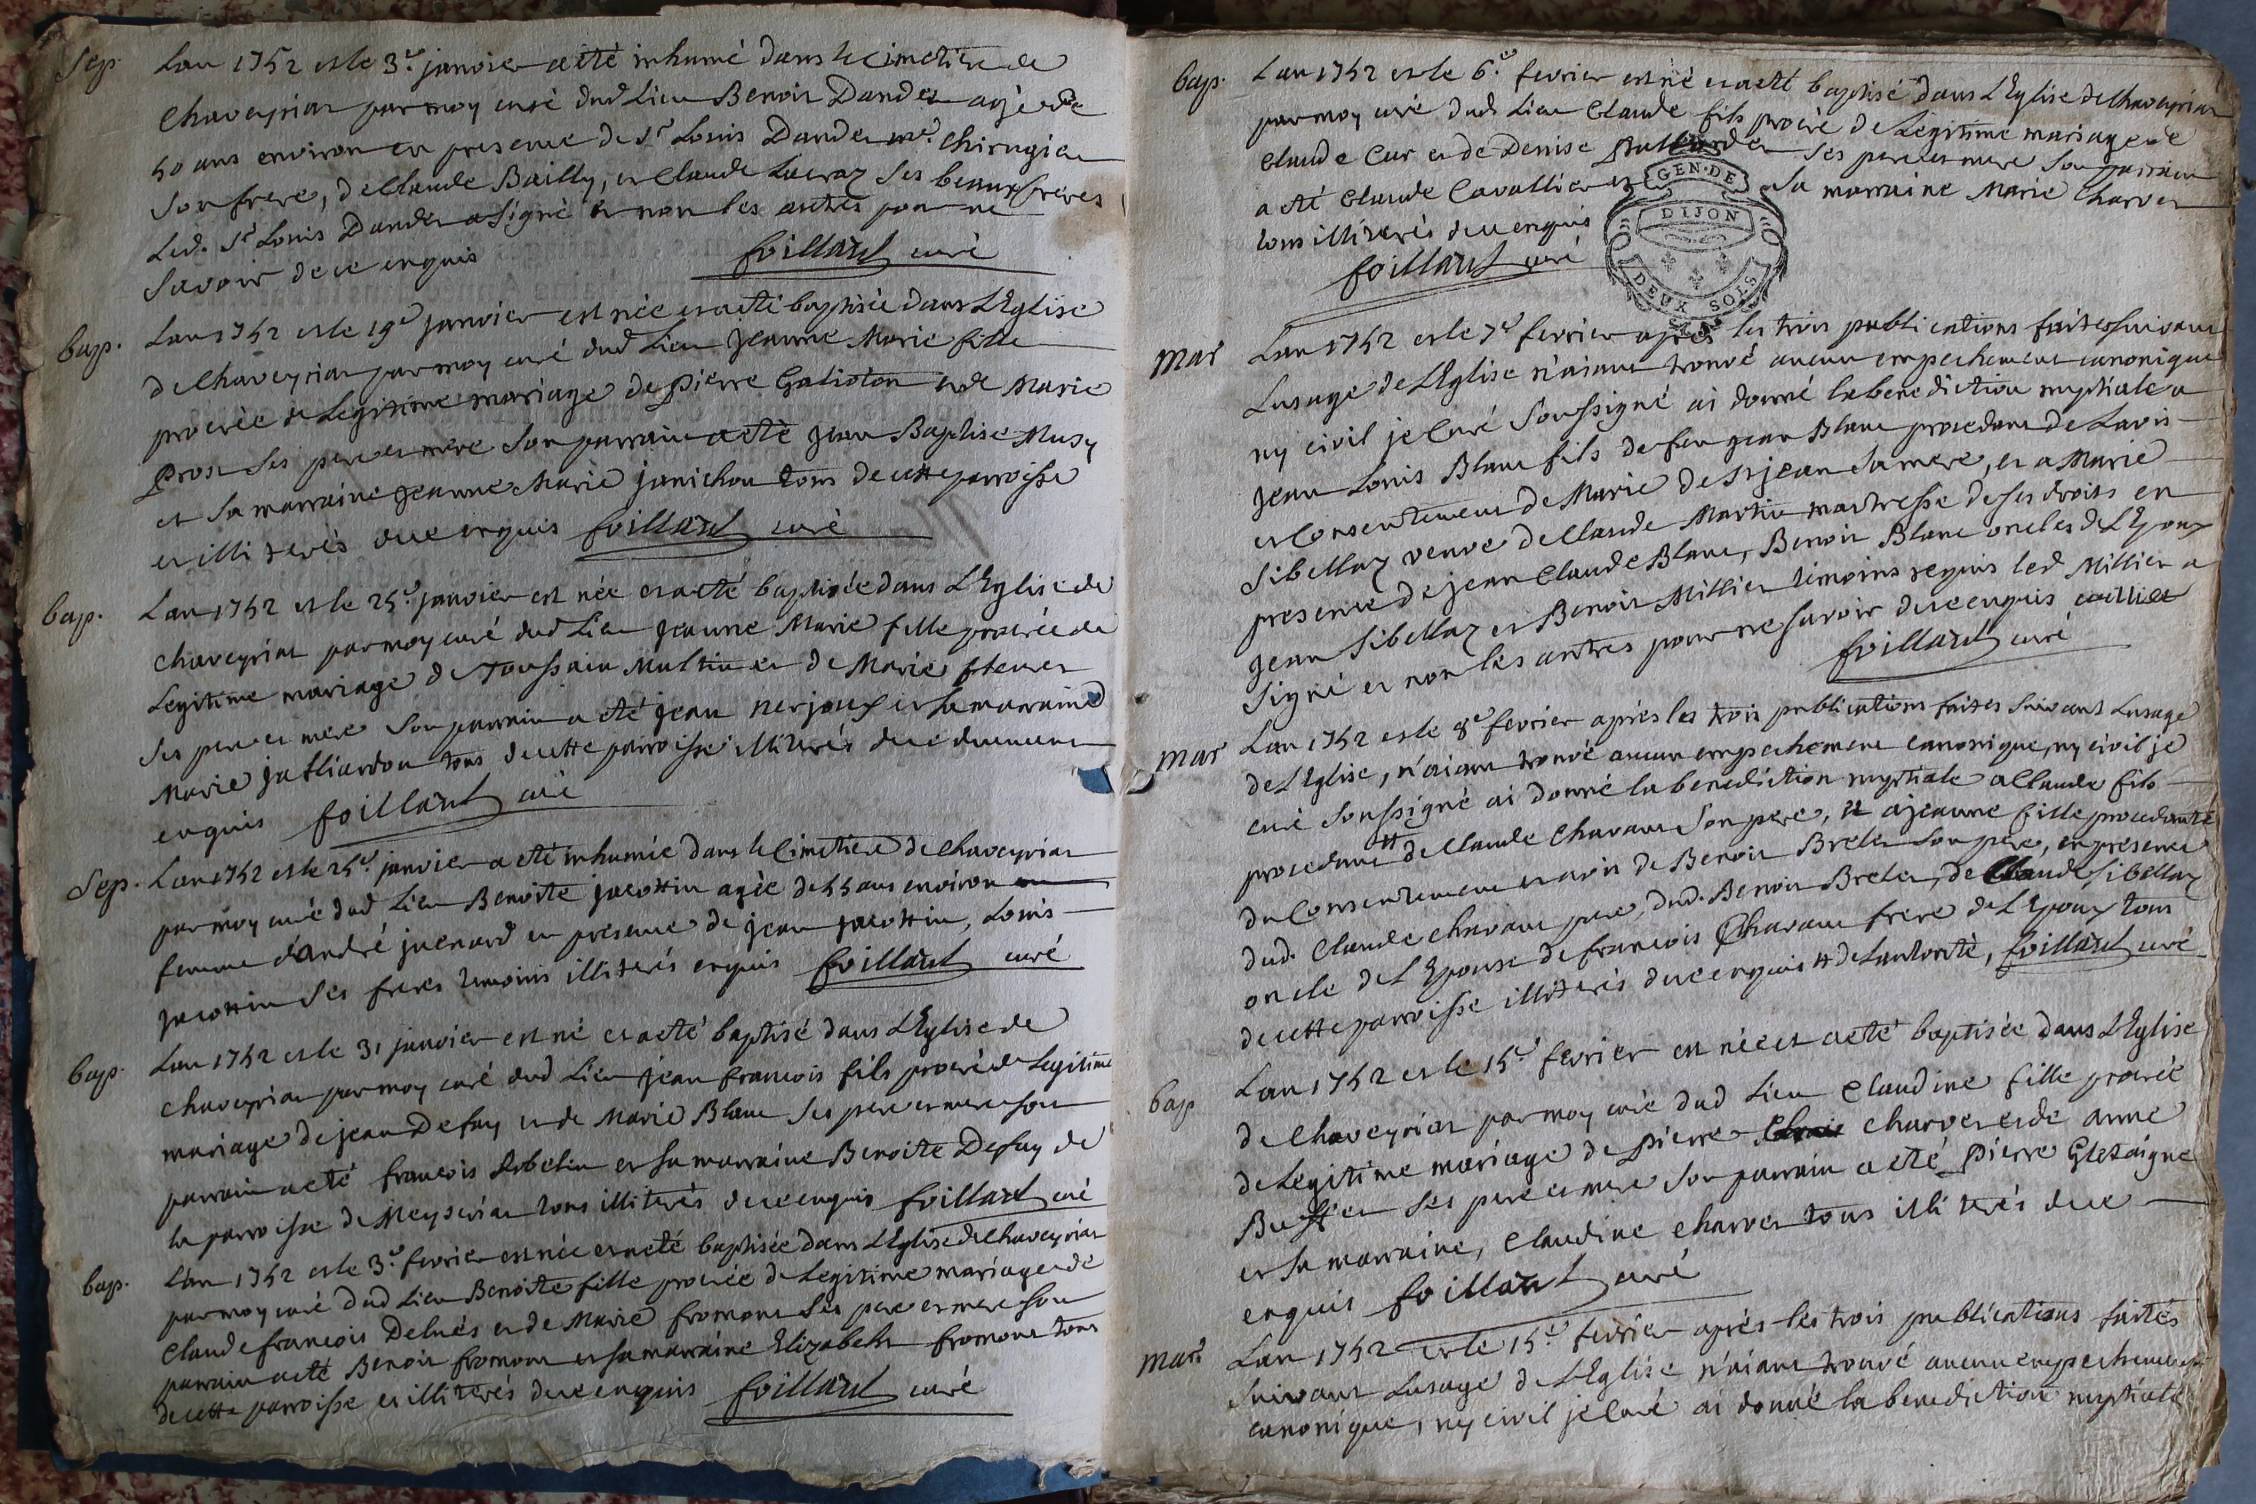 Sep. Lan 1752 et le 3e. janvier a été inhumé dans le Cimetiere de
Chaveyriat par moy curé dud Lieu Benoit Dandet agé de
50 ans environ en presence de Sr Louis Dandet me. Chirugien
Son frere, de Claude Bailly, et Claude Lacraz Ses beaux freres
Led. Sr Louis Dandet a Signé et non les autres pour ne
Savoir de ce enquis foillard curé
bap. Lan 1752 et le 19e janvier est née et a eté baptisée dans L'Eglise
de Chaveyriat par moy curé dud Lieu Jeanne Marie fille
procréée de Legitime mariage de Pierre Galioton et de Marie
Prost Ses pere et mere Son parrain a eté Jean Baptise Musy
et Sa marraine Jeanne Marie janichon tous de cette parroisse
et illiterés de ce enquis foillard curé
bap. Lan 1752 et le 25e. janvier est née et a eté baptisée dans L'Eglise de
Chaveyriat par moy curé dud Lieu Jeanne Marie fille procréée de
Legitime mariage de Toussain Multin et de Marie
Ses pere et mere Son parrain a eté jean nerjoux et Sa marraine
Marie jailliardon tous de cette parroisse illiterés de ce duement
enquis foillard curé
Sep. Lan 1752 et le 25e. janvier a eté inhumée dans le Cimetiere de Chaveyriat
par moy curé dud Lieu Benoite jacottin agée de 55 ans environ
femme d'andré juenard en presence de jean jacottin, Louis
jacottin Ses freres temoins illiterés enquis foillard curé
bap. Lan 1752 et le 31 janvier est né et a eté baptisé dans L'Eglise de
Chaveyriat par moy curé dud Lieu jean francois fils procréé de Legitime
mariage de jean Defay et de Marie Blanc Ses pere et mere Son
parrain a eté francois Robelin et Sa marraine Benoite Defay de
la parroisse de Meyzeriat tous illiterés de ce enquis foillard curé
bap. Lan 1752 et le 3e. fevrier est née et a eté baptisée dans L'Eglise de Chaveyriat
par moy curé dud Lieu Benoite fille procréée de Legitime mariage de
Claude francois Delués et de Marie fromont Ses pere et mere Son
parrain a eté Benoit fromont et Sa marraine Elizabeth fromont tous
de cette parroisse et illiterés de ce enquis foillard curé
bap. Lan 1752 et le 6e. fevrier est né et a eté baptisé dans L'Eglise de Chaveyriat
par moy curé dud Lieu Claude fils procréé de Legitime mariage de
Claude Cur et de Denise Ses pere et mere Son parrain
a eté Claude Cavallier et Sa marraine Marie Charvet
tous illiterés de ce enquis
foillard curé
GEN. DE
DIJON
DEUX SOLS
mar Lan 1752 et le 7e fevrier apres les trois publications faites suivant
Lusage de L'Eglise n'aiant trouvé aucun empechement canonique
ny civil je Curé Soussigné ai donné la benediction nuptiale a
Jean Louis Blanc fils de feu jean Blanc procedant de Lavis
et Consentement de Marie de St jean Sa mere, et a Marie
Sibellaz veuve de Claude Martin maitresse de Ses droits en
presence de jean Claude Blanc, Benoit Blanc oncles de L'Epoux
jean Sibellaz et Benoit Millier temoins requis led Millier a
Signé et non les autres pour ne Savoir de ce enquis millier
foillard curé
mar Lan 1752 et le 8e fevrier aprés les trois publications faites Suivant Lusage
de L'Eglise, n'aiant trouvé aucun empechement canonique, ny civil je
curé Soussigné ai donné la benediction nuptiale a Claude fils
procedant # de Claude Chavant Son pere, et a jeanne fille procedante
du Consentement et avis de Benoit Bretet Son pere, en presence
dud. Claude Chavant pere, dud. Benoit Bretet, de Claude Sibellaz
oncle de L'Epouse de francois Chavant frere de L'Epoux tous
de cette parroisse illiterés de ce enquis # de Lautorité, foillard curé
bap Lan 1752 et le 15e fevrier est née et a eté baptisée dans L'Eglise
de Chaveyriat par moy curé dud Lieu Claudine fille procréée
de Legitime mariage de Pierre Charvet et de anne
Ses pere et mere Son parrain a eté Pierre Gletaigne
et Sa marraine, Claudine Charvet tous illiterés de ce
enquis foillard curé
mar. Lan 1752 et le 15e. fevrier aprés les trois publications faites
Suivant Lusage de L'Eglise n'aiant trouvé aucun empechement
canonique, ny civil je Curé ai donné la benediction nuptiale